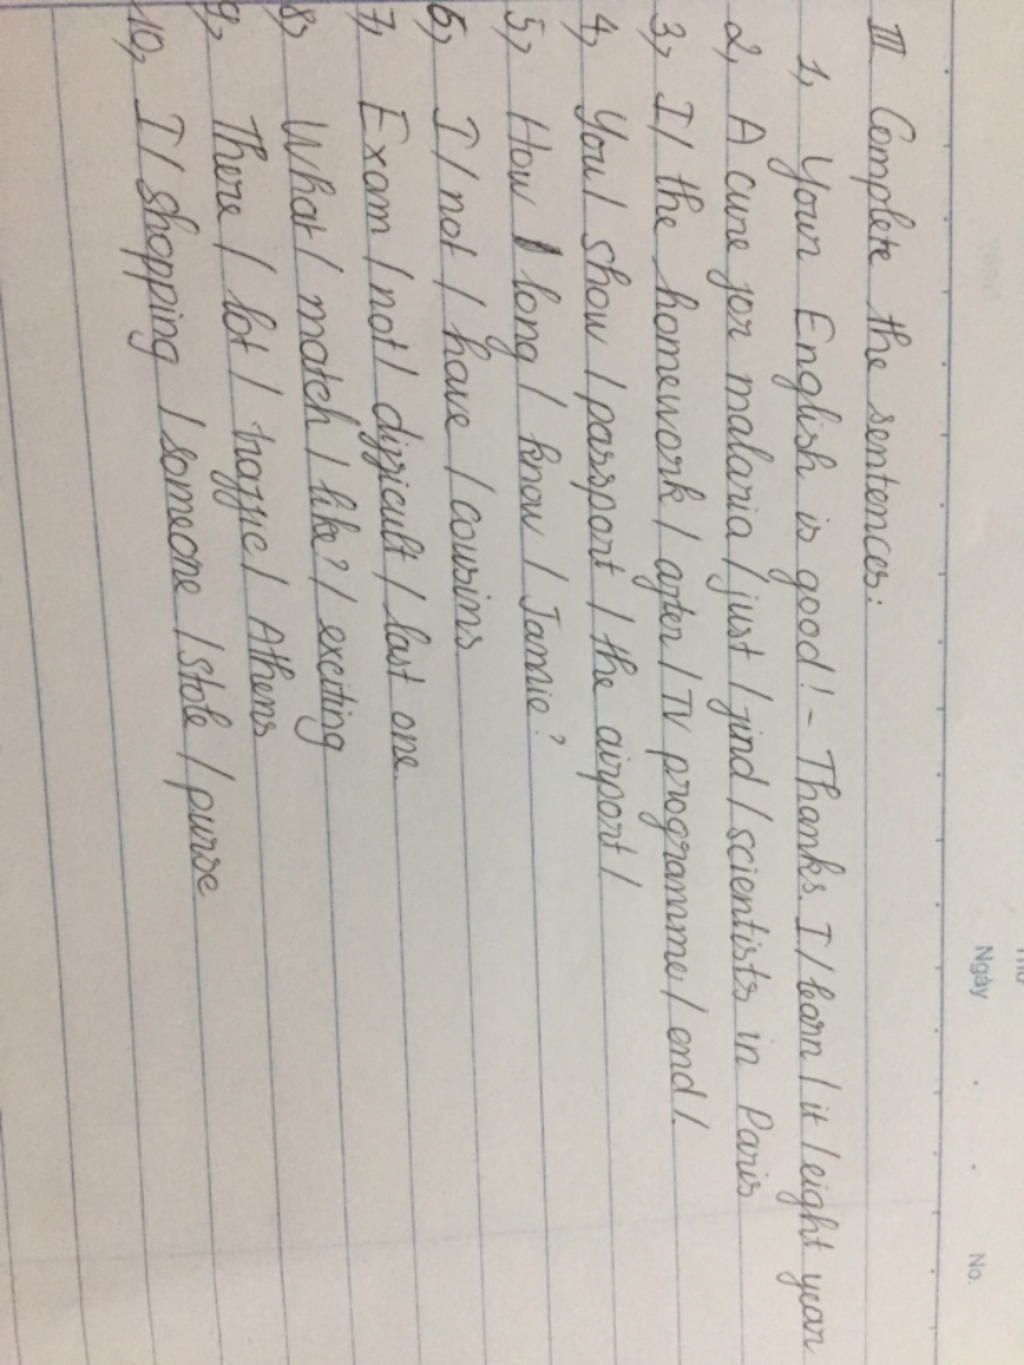 Thứ
Ngày . . No.
III Complete the sentences:
1, Your English is good! - Thanks. I / learn / it / eight year
2, A cure for malaria / just / find / scientists in Paris
3, I / the homework / after / TV programme / end /.
4, You / show / passport / the airport /
5, How / long / know / Jamie?
6, I / not / have / cousins
7, Exam / not / difficult / last one
8, What / match / like? / exciting
9, There / lot / traffic / Athens
10, I / shopping / someone / stole / purse